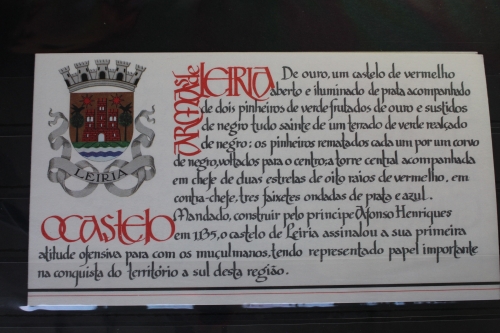 LEIRIA
ARMAS de
LEIRIA
De ouro, um castelo de vermelho
aberto e iluminado de prata acompanhado
de dois pinheiros de verde frutados de ouro e sustidos
de negro tudo sainte de um terrado de verde realçado
de negro; os pinheiros rematados cada um por um corvo
de negro, voltados para o centro; a torre central acompanhada
em chefe de duas estrelas de oito raios de vermelho, em
contra-chefe, tres faixetes ondadas de prata e azul.
O CASTELO
Mandado, construir pelo principe Dafonso Henriques
em 1135, o castelo de Leiria assinalou a sua primeira
atitude ofensiva para com os muçulmanos, tendo representado papel importante
na conquista do território a sul desta região.